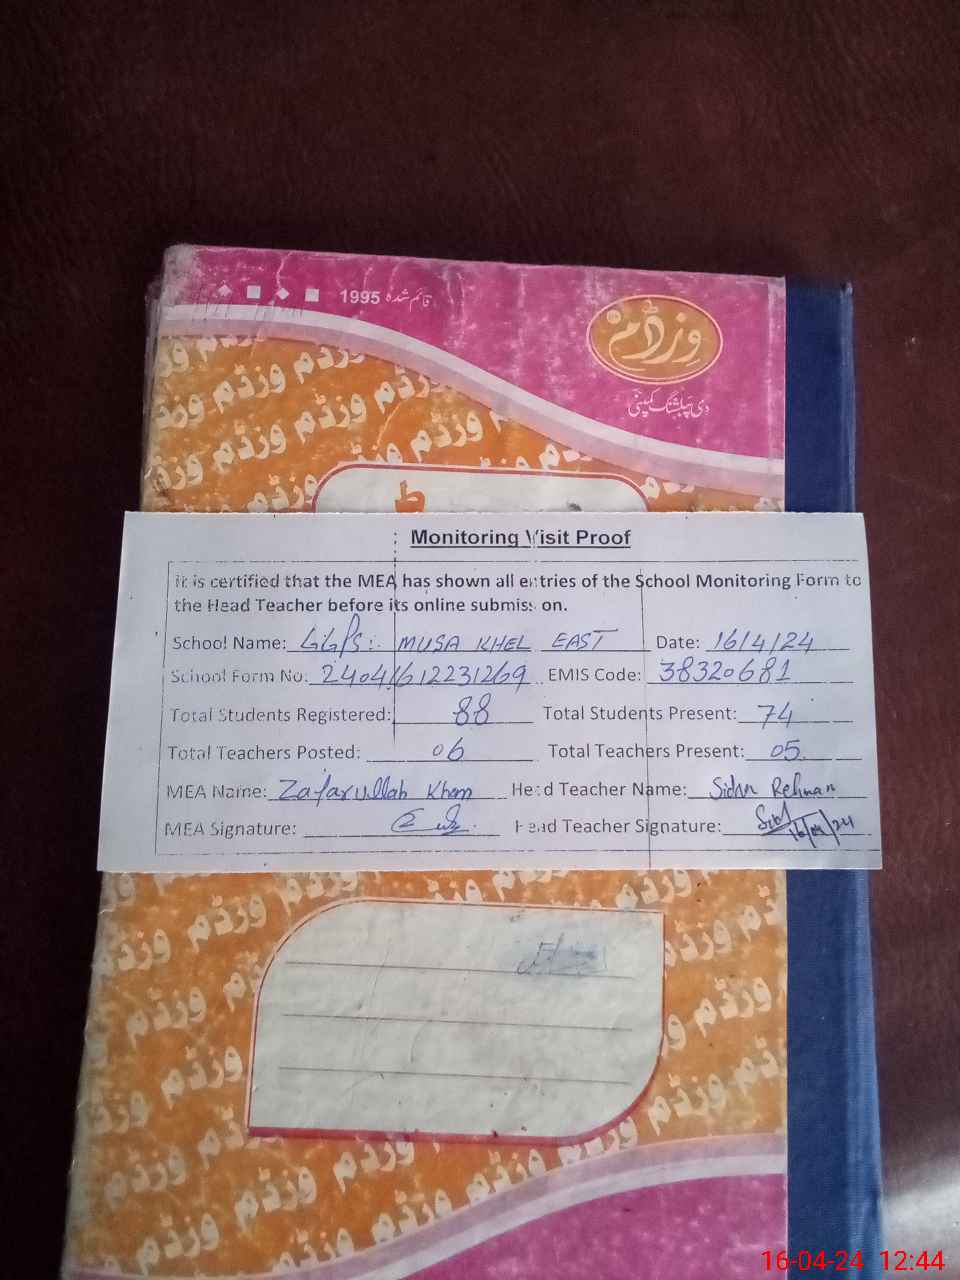 1995 قائم شدہ
وزڈم
دی پبلشنگ کمپنی
Monitoring Visit Proof
It is certified that the MEA has shown all entries of the School Monitoring Form to
the Head Teacher before its online submission.
School Name: GGPS: MUSA KHEL EAST Date: 16/4/24
School Form No. 24041612231269 EMIS Code: 38320681
Total Students Registered: 88 Total Students Present: 74
Total Teachers Posted: 06 Total Teachers Present: 05
MEA Name: Zafarullah Khan Head Teacher Name: Rehman
MEA Signature: Head Teacher Signature: 16/04/24
16-04-24 12:44